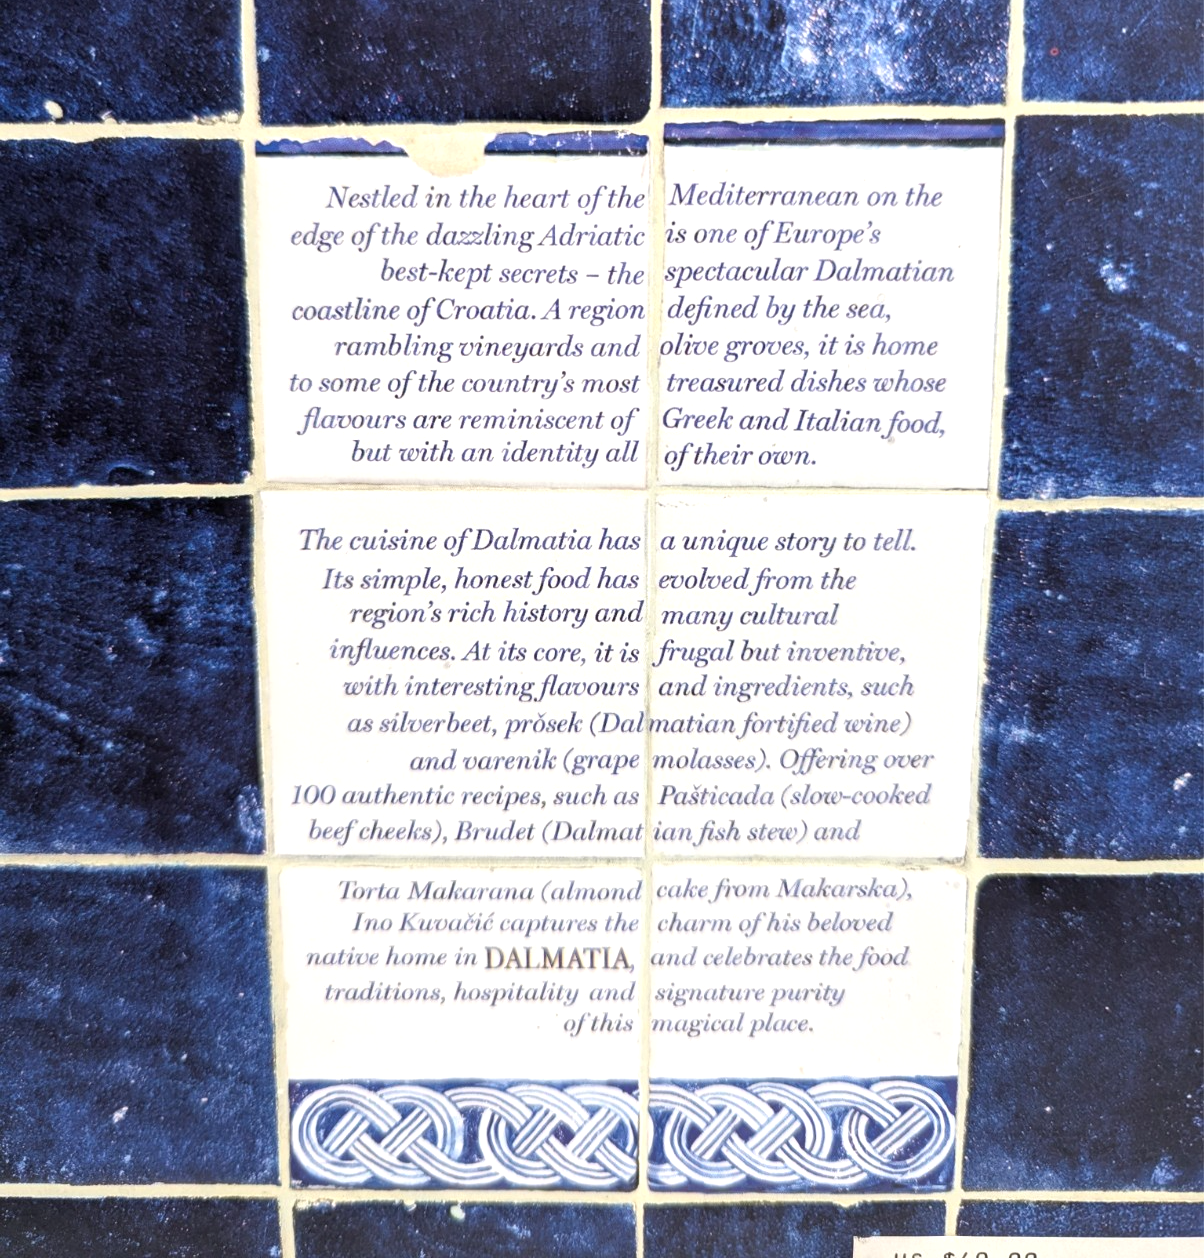 Nestled in the heart of the Mediterranean on the
edge of the dazzling Adriatic is one of Europe's
best-kept secrets – the spectacular Dalmatian
coastline of Croatia. A region defined by the sea,
rambling vineyards and olive groves, it is home
to some of the country's most treasured dishes whose
flavours are reminiscent of Greek and Italian food,
but with an identity all of their own.
The cuisine of Dalmatia has a unique story to tell.
Its simple, honest food has evolved from the
region's rich history and many cultural
influences. At its core, it is frugal but inventive,
with interesting flavours and ingredients, such
as silverbeet, prǒsek (Dalmatian fortified wine)
and varenik (grape molasses). Offering over
100 authentic recipes, such as Pašticada (slow-cooked
beef cheeks), Brudet (Dalmatian fish stew) and
Torta Makarana (almond cake from Makarska),
Ino Kuvačić captures the charm of his beloved
native home in DALMATIA, and celebrates the food
traditions, hospitality and signature purity
of this magical place.
US